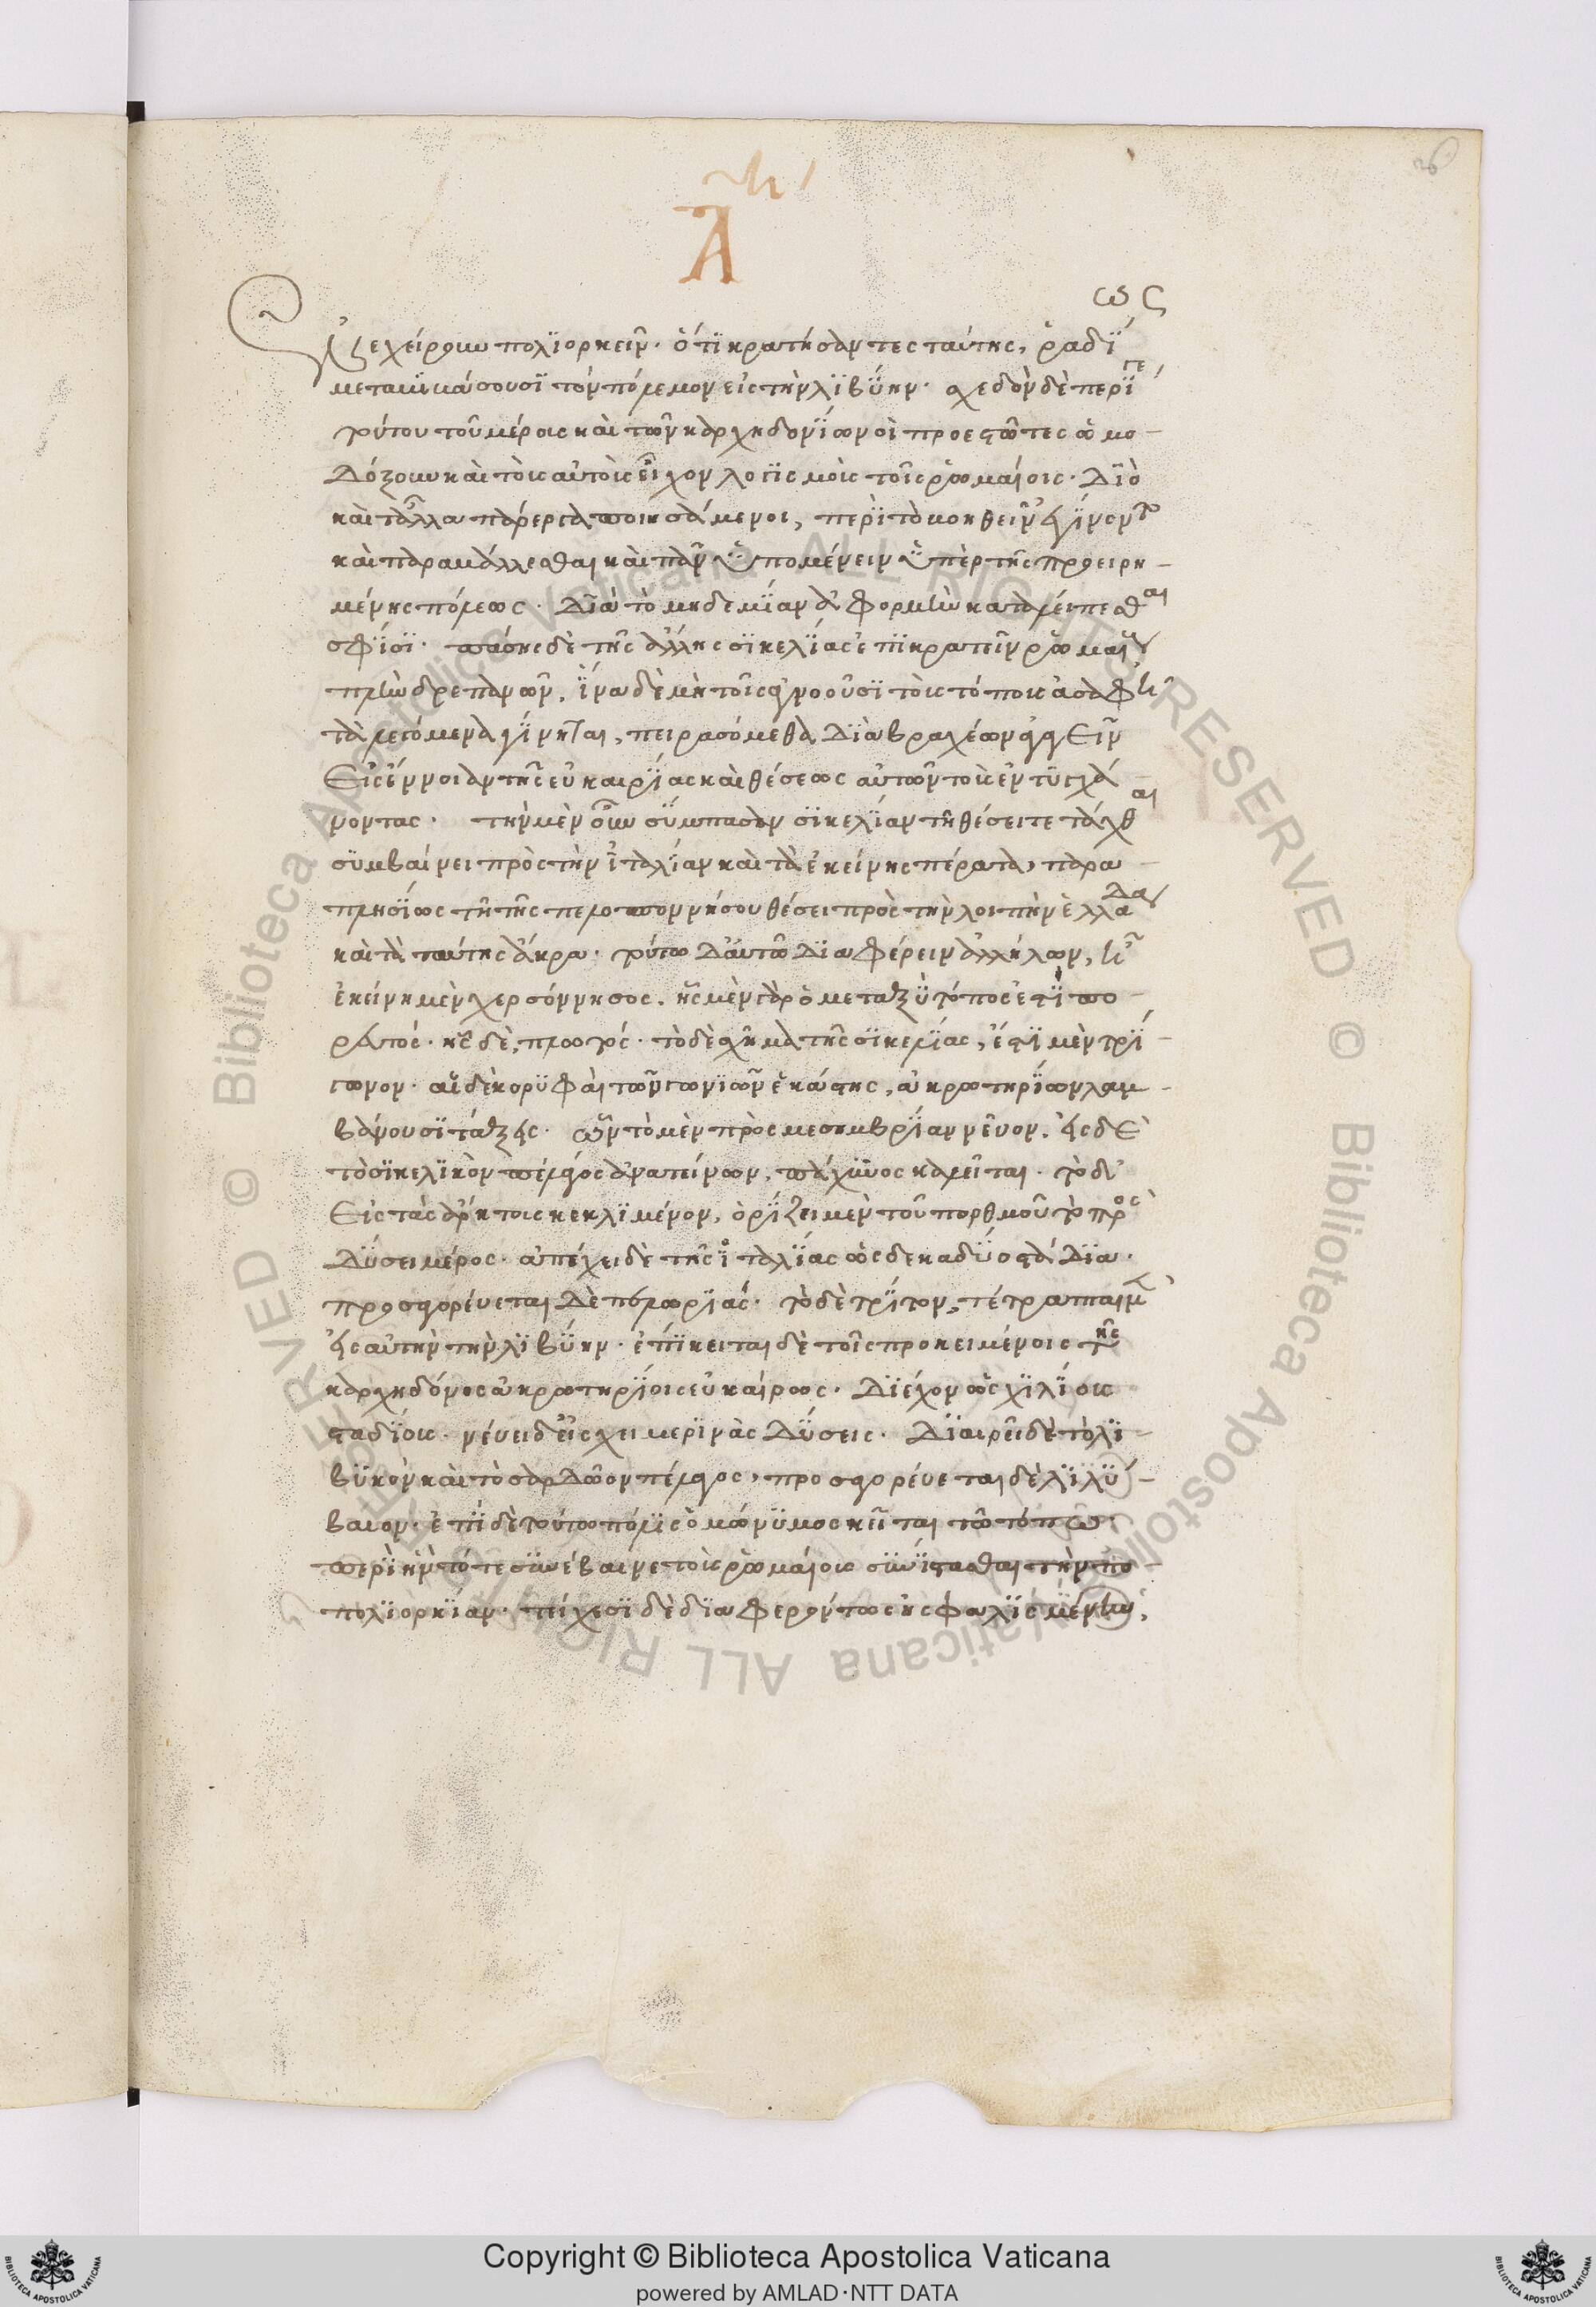 Α
ἐξεχείρουν πολϊορκεῖν· ὅτϊ κρατήσαντες ταύτης, ῥαδΐως
μεταβιβάσουσϊ τὸν πόλεμον εἰς τὴν λϊβΰην· σχεδὸν δὲ περΐ γε
τούτου τοῦ μέρους καὶ τῶν καρχηδονΐων οἱ προεστῶτες ὡμο-
δόξουν καὶ τοῖς αὐτοῖς εἶχον λογϊσμοῖς τοῖς ῥωμαίοις· Διὸ
καὶ τἄλλα πάρεργα ποιησάμενοι, περὶ τὸ βοηθεῖν ἐγΐνοντο
καὶ παραβάλλεσθαι καὶ πᾶν ὑπομένειν ὑπὲρ τῆς προειρη-
μένης πόλεως· Διὰ τὸ μηδεμΐαν ἀφορμὴν καταλείπεσθαι
σφΐσϊ· πάσης δὲ τῆς ἄλλης σϊκελΐας ἐπϊκρατεῖν ῥωμαίους
πλὴν δρεπάνων, ἵνα δὲ μὴ τοῖς ἀγνοοῦσϊ τοὺς τόπους ἀσαφῆ
τὰ λεγόμενα γΐνηται, πειρασόμεθα Διὰ βραχέων ἀγαγεῖν
εἰς ἔννοιαν τῆς εὐκαιρΐας καὶ θέσεως αὐτῶν τοὺς ἐντυγχά
νοντας· τὴν μὲν οὖν σΰμπασαν σϊκελΐαν τῆ θέσει τετάχθαι
συμβαίνει πρὸς τὴν ἰταλΐαν καὶ τὰ ἐκείνης πέρατα, παρα-
πλησΐως τῆ τῆς πελοποννήσου θέσει πρὸς τὴν λοιπὴν ἑλλάδα
καὶ τὰ ταύτης ἄκρα· τούτω Δ' αὐτῶ Διαφέρειν ἀλλήλων, ἧ
ἐκείνη μὲν χερσόννησος, ἧς μὲν γὰρ ὁ μεταξὺ τόπος ἐστΐ πο-
ρευτός· ἧς δὲ, πλωτός· τὸ δὲ σχῆμα τῆς σϊκελΐας, ἐστΐ μὲν τρΐ-
γωνον· αἱ δὲ κορυφαὶ τῶν γωνϊῶν ἑκάστης, ἀκρωτηρΐων λαμ-
βάνουσϊ τάξεις· ὧν τὸ μὲν πρὸς μεσημβρΐαν νεῦον, εἰς δὲ
τὸ σϊκελϊκὸν πέλαγος ἀνατείνων, πάχυνος καλεῖται· τὸ δ'
εἰς τὰς ἄρκτους κεκλϊμένον, ὁρΐζει μὲν τοῦ πορθμοῦ τὸ πρὸς
Δΰσει μέρος· ἀπέχει δὲ τῆς ἰταλΐας ὡς δεκαδΰο στάΔϊα·
προσαγορεύεται Δὲ πελωρϊάς· τὸ δὲ τρΐτον, τέτραπται μὲν
εἰς αὐτὴν τὴν λϊβΰην· ἐπΐκειται δὲ τοῖς προκειμένοις τῆς
καρχηδόνος ἀκρωτηρΐοις εὐκαίρως· Δϊέχον ὡς χϊλΐους
σταδΐους· νεύει δ' εἰς χειμερϊνὰς Δΰσεις· Δϊαιρεῖ δὲ τὸ λϊ-
βυκὸν καὶ τὸ σαρΔῶον πέλαγος, προσαγορεύεται δὲ λϊλΰ-
βαιον· ἐπΐ δὲ τούτω πόλϊς ὁμώνυμος κεῖται τῶ τόπω·
περὶ ἣν τότε συνέβαινε τοὺς ῥωμαίους συνΐστασθαι τὴν πο
πολϊορκΐαν· τείχεσϊ δὲ δϊαφερόντως ἠσφαλϊσμένην,
Copyright © Biblioteca Apostolica Vaticana
powered by AMLAD·NTT DATA